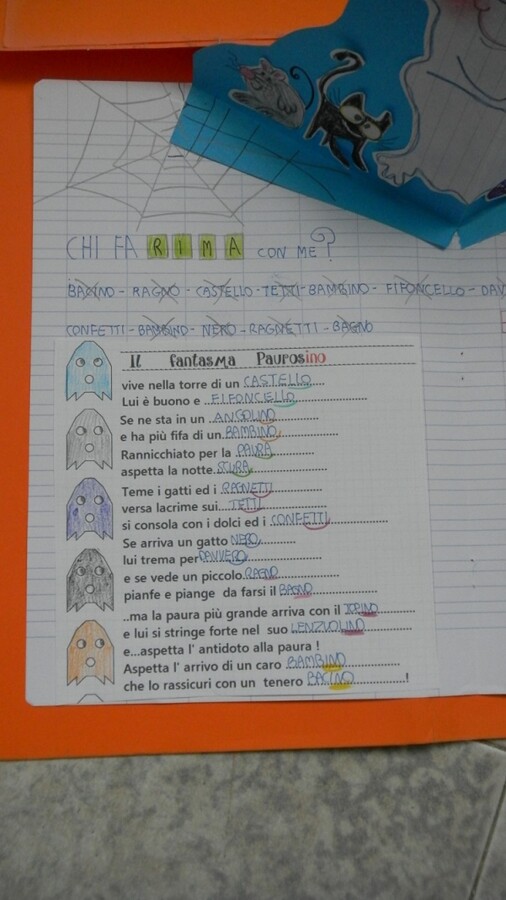 CHI FA RIMA CON ME?
BACINO - RAGNO - CASTELLO - TETTI - BAMBINO - FIFONCELLO - DAV
CONFETTI - BAMBINO - NERO - RAGNETTI - BAGNO
Il fantasma Paurosino
vive nella torre di un CASTELLO
Lui è buono e FIFONCELLO
Se ne sta in un ANGOLINO
e ha più fifa di un BAMBINO
Rannicchiato per la PAURA
aspetta la notte SCURA
Teme i gatti ed i RAGNETTI
versa lacrime sui... TETTI
si consola con i dolci ed i CONFETTI
Se arriva un gatto NERO
lui trema per DAVVERO
e se vede un piccolo RAGNO
pianfe e piange da farsi il BAGNO
..ma la paura più grande arriva con il TOPINO
e lui si stringe forte nel suo LENZUOLINO
e...aspetta l' antidoto alla paura !
Aspetta l' arrivo di un caro BAMBINO
che lo rassicuri con un tenero BACINO !